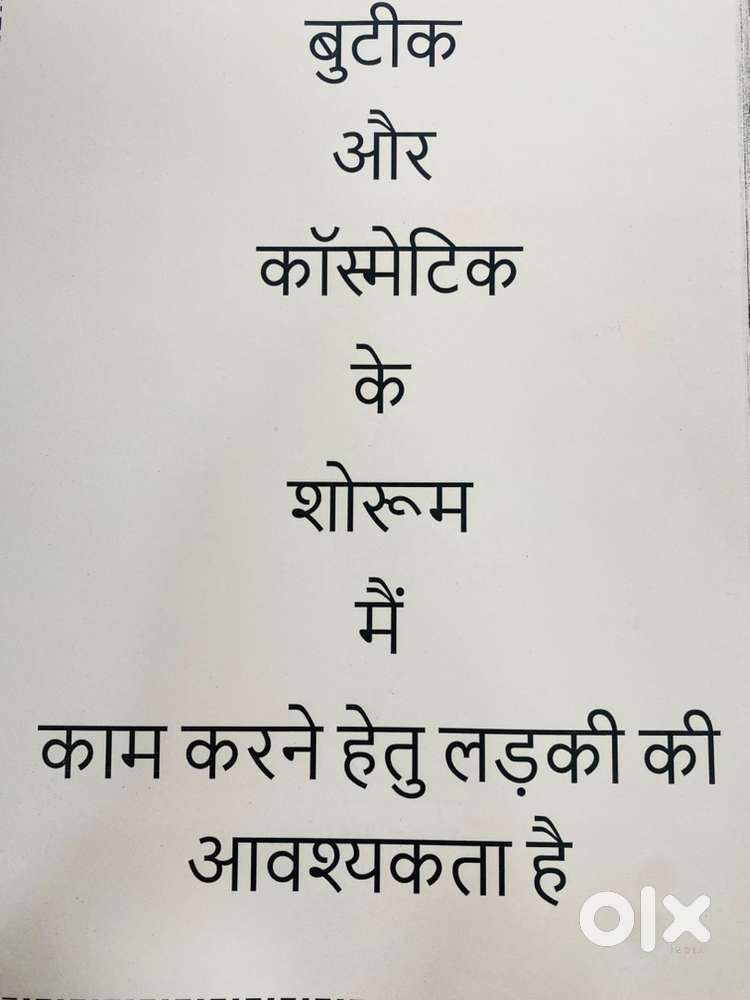 बुटीक
और
कॉस्मेटिक
के
शोरूम
मैं
काम करने हेतु लड़की की
आवश्यकता है
olx
INDIA